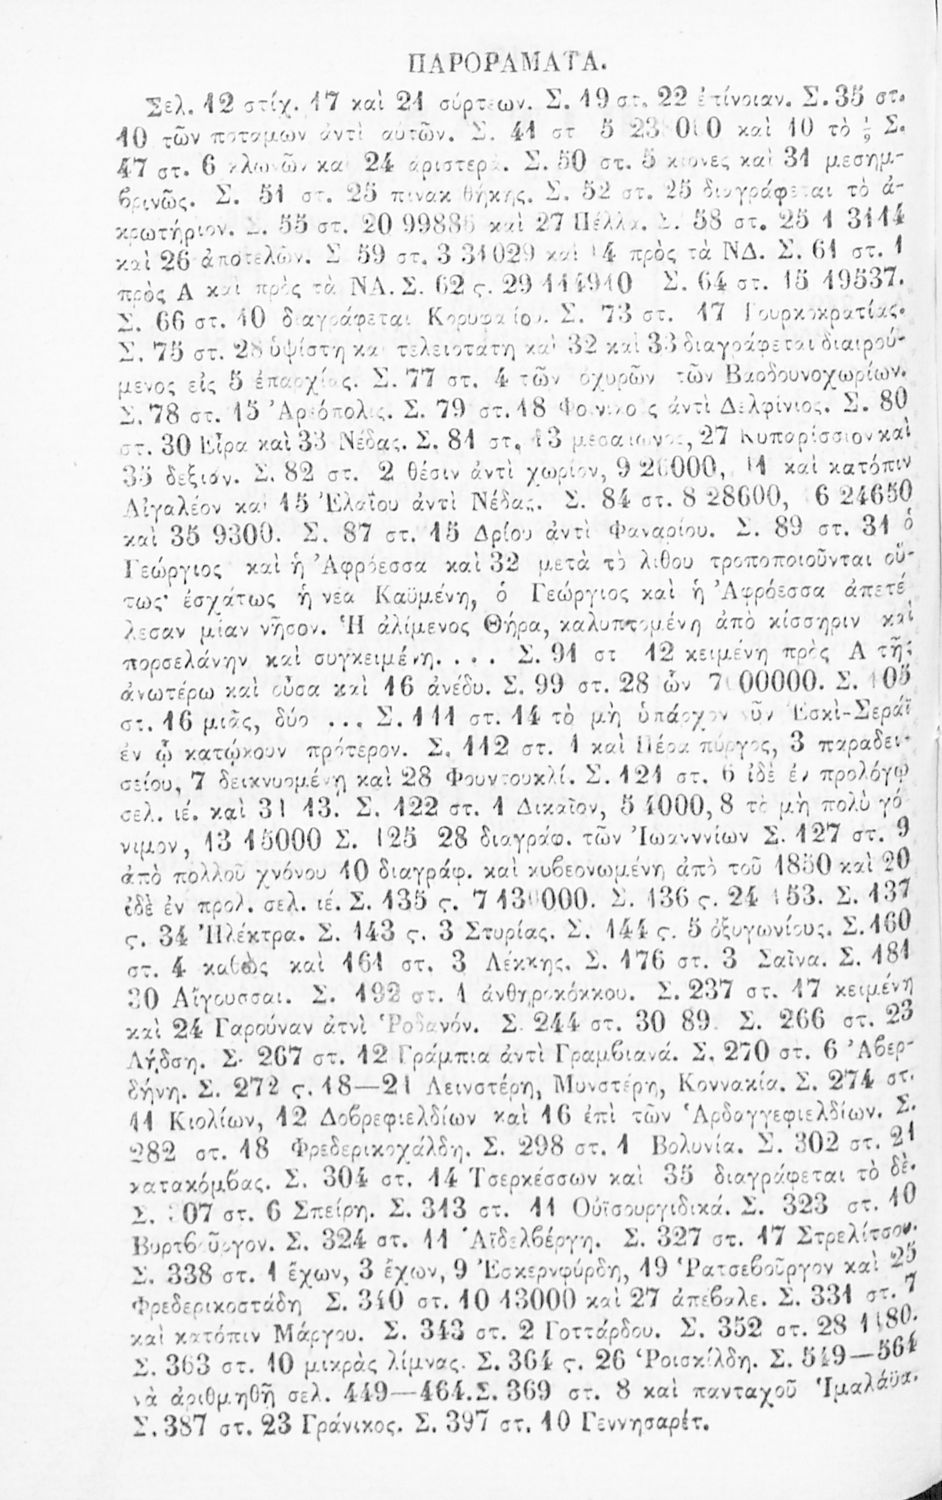 ΠΑΡΟΡΑΜΑΤΑ.
Σελ. 12 στίχ. 17 καὶ 21 σύρτεων. Σ. 19 στ. 22 ἐτίνοιαν. Σ. 35 στ.
10 τῶν ποταμων ἀντὶ αὐτῶν. Σ. 41 στ 5 καὶ 10 τὸ Σ.
47 στ. 6 κλωνῶν κα 24 ἀριστερ. Σ. 50 στ. 5 κίονες καὶ 31 μεσημ-
βρινῶς. Σ. 51 στ. 25 πινακοθήκης. Σ. 52 στ. 25 διαγράφεται τὸ ἀ-
κρωτήριον. Σ. 55 στ. 20 99886 καὶ 27 Πέλλα. Σ. 58 στ. 25 1 3144
καὶ 26 ἀποτελῶν. Σ 59 στ. 3 31029 καὶ 14 πρὸς τὰ ΝΔ. Σ. 61 στ. 1
πρὸς Α καὶ πρὸς τὰ ΝΑ. Σ. 62 ς. 29 114940 Σ. 64 στ. 15 19537.
Σ. 66 στ. 10 διαγράφεται Κορυφαίου. Σ. 73 στ. 17 Τουρκοκρατίας.
Σ. 75 στ. 28 ὑψίστη κα τελειοτάτη καὶ 32 καὶ 33 διαγράφεται διαιρού-
μενος εἰς 5 ἐπαρχίας. Σ. 77 στ. 4 τῶν ὀχυρῶν τῶν Βαρδουνοχωρίων.
Σ. 78 στ. 15 Ἀρεόπολις. Σ. 79 στ. 18 Φοινικοῦς ἀντὶ Δελφίνιος. Σ. 80
στ. 30 Εἶρα καὶ 33 Νέδας. Σ. 81 στ. 13 μεσαιωνος, 27 Κυπαρίσσιον καὶ
35 δεξιὰν. Σ. 82 στ. 2 θέσιν ἀντὶ χωρίον, 9 26000, 11 καὶ κατόπιν
Αἰγαλέον καὶ 15 Ἐλαΐου ἀντὶ Νέδας. Σ. 84 στ. 8 28600, 6 24650
καὶ 35 9300. Σ. 87 στ. 15 Δρίου ἀντὶ Φαναρίου. Σ. 89 στ. 31 ὁ
Γεώργιος καὶ ἡ Ἀφρόεσσα καὶ 32 μετὰ τὸ λίθου τροποποιοῦνται οὕ-
τως· ἐσχάτως ἡ νέα Καϋμένη, ὁ Γεώργιος καὶ ἡ Ἀφρόεσσα ἀπετέ
λεσαν μίαν νῆσον. Ἡ ἀλίμενος Θήρα, καλυπτομένη ἀπὸ κίσσηριν καὶ
πορσελάνην καὶ συγκειμένη. . . . Σ. 91 στ 12 κειμένη πρὸς Α τῆς
ἀνωτέρω καὶ οὖσα καὶ 16 ἀνέδυ. Σ. 99 στ. 28 ὧν 7 00000. Σ. 105
στ. 16 μιᾶς, δύο ... Σ. 111 στ. 14 τὸ μὴ ὑπάρχον νῦν Ἐσκὶ-Σεράϊ
ἐν ᾧ κατῴκουν πρότερον. Σ. 112 στ. 1 καὶ Πέρα πύργος, 3 παραδει-
σείου, 7 δεικνυομένη καὶ 28 Φουντουκλί. Σ. 121 στ. 6 ἰδὲ ἐν προλόγῳ
σελ. ιέ. καὶ 31 13. Σ. 122 στ. 1 Δικαῖον, 5 4000, 8 τὸ μὴ πολὺ γό
νιμον, 13 15000 Σ. 125 28 διαγράφ. τῶν Ἰωαννίων Σ. 127 στ. 9
ἀπὸ πολλοῦ χρόνου 10 διαγράφ. καὶ κυβερνωμένη ἀπὸ τοῦ 1850 καὶ 20
ἰδὲ ἐν προλ. σελ. ιέ. Σ. 135 ς. 7 130000. Σ. 136 ς. 24 153. Σ. 137
ς. 34 Ἠλέκτρα. Σ. 143 ς. 3 Στυρίας. Σ. 144 ς. 5 ὀξυγωνίους. Σ. 160
στ. 4 καθὼς καὶ 161 στ. 3 Λέκκης. Σ. 176 στ. 3 Σαῖνα. Σ. 181
30 Αἴγουσσαι. Σ. 192 στ. 1 ἀνθηροκόκκου. Σ. 237 στ. 17 κειμένη
καὶ 24 Γαρούναν ἀτνὶ Ῥοδανόν. Σ. 244 στ. 30 89. Σ. 266 στ. 23
Λήδση. Σ. 267 στ. 12 Γράμπια ἀντὶ Γραμβιανά. Σ. 270 στ. 6 Ἀβερ-
δήνη. Σ. 272 ς. 18—21 Λεινστέρη, Μυνστέρη, Κοννακία. Σ. 274 στ.
11 Κιολίων, 12 Δοβρεφιελδίων καὶ 16 ἐπὶ τῶν Ἀρδαγγεφιελδίων. Σ.
282 στ. 18 Φρεδερικοχάλδη. Σ. 298 στ. 1 Βολυνία. Σ. 302 στ. 21
κατακόμβας. Σ. 304 στ. 14 Τσερκέσσων καὶ 35 διαγράφεται τὸ δὲ.
Σ. 307 στ. 6 Σπείρη. Σ. 313 στ. 11 Οὐϊσουργιδικά. Σ. 323 στ. 10
Βυρτβοῦργον. Σ. 324 στ. 11 Ἀϊδελβέργη. Σ. 327 στ. 17 Στρελίτσου.
Σ. 338 στ. 1 ἔχων, 3 ἔχων, 9 Ἐσκερνφύρδη, 19 Ῥατσεβοῦργον καὶ 25
Φρεδερικοστάδη Σ. 340 στ. 10 13000 καὶ 27 ἀπέβαλε. Σ. 331 στ. 7
καὶ κατόπιν Μάργου. Σ. 343 στ. 2 Γοττάρδου. Σ. 352 στ. 28 1180.
Σ. 363 στ. 10 μικρὰς λίμνας. Σ. 364 ς. 26 Ῥοισκίλδη. Σ. 549—564
νὰ ἀριθμηθῇ σελ. 449—464. Σ. 369 στ. 8 καὶ πανταχοῦ Ἱμαλάϋα.
Σ. 387 στ. 23 Γράνικος. Σ. 397 στ. 10 Γεννησαρέτ.